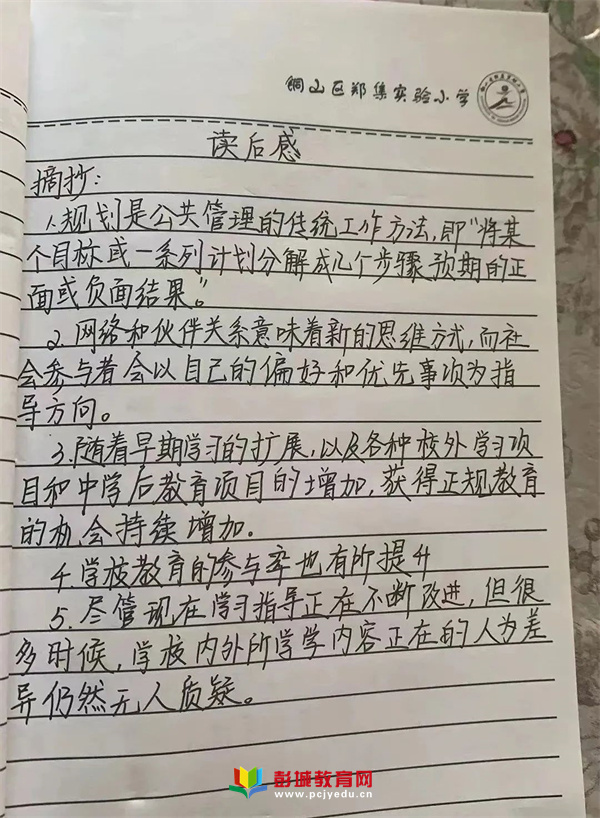 铜山区郑集实验小学
读后感
摘抄:
1.规划是公共管理的传统工作方法,即“将某
个目标或一系列计划分解成几个步骤预期的正
面或负面结果”。
2.网络和伙伴关系意味着新的思维方式,而社
会参与者会以自己的偏好和优先事项为指
导方向。
3.随着早期学习的扩展,以及各种校外学习项
目和中学后教育项目的增加,获得正规教育
的机会持续增加.
4.学校教育的参与率也有所提升
5.尽管现在学习指导正在不断改进,但很
多时候,学校内外所学学内容正在的人为差
异仍然无人质疑。
彭城教育网
www.pcjyedu.cn